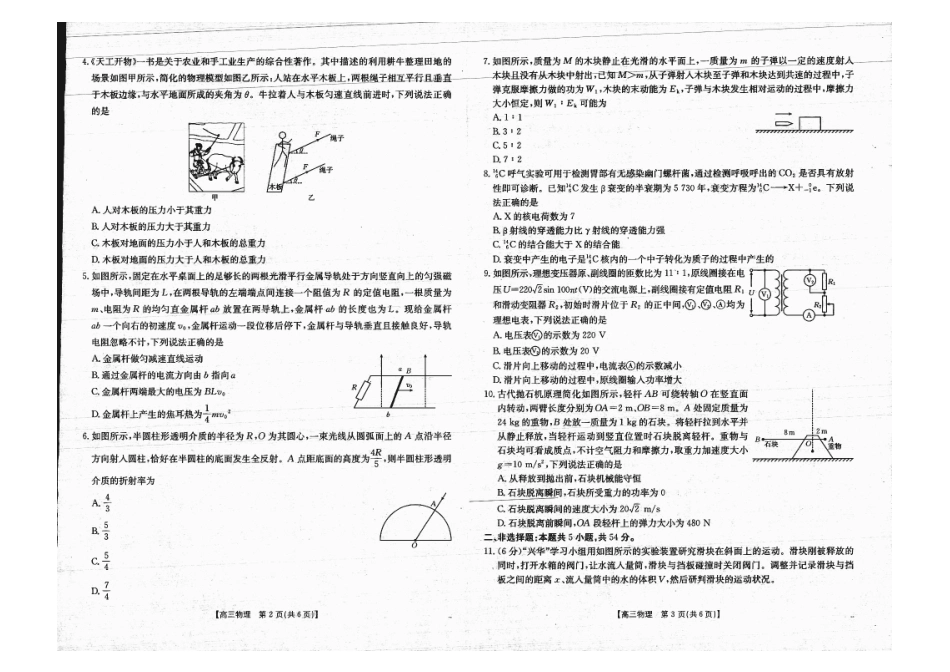 4.《天工开物》一书是关于农业和手工业生产的综合性著作。其中描述的利用耕牛整理田地的
场景如图甲所示,简化的物理模型如图乙所示:人站在水平木板上,两根绳子相互平行且垂直
于木板边缘,与水平地面所成的夹角为θ。牛拉着人与木板匀速直线前进时,下列说法正确
的是
F
绳子
θ
F
绳子
θ
木板
甲
乙
A. 人对木板的压力小于其重力
B. 人对木板的压力大于其重力
C. 木板对地面的压力小于人和木板的总重力
D. 木板对地面的压力大于人和木板的总重力
5. 如图所示,固定在水平桌面上的足够长的两根光滑平行金属导轨处于方向竖直向上的匀强磁
场中,导轨间距为 L,在两根导轨的左端端点间连接一个阻值为 R 的定值电阻,一根质量为
m、电阻为 R 的均匀直金属杆 ab 放置在两导轨上,金属杆 ab 的长度也为 L。现给金属杆
ab 一个向右的初速度 v₀,金属杆运动一段位移后停下,金属杆与导轨垂直且接触良好,导轨
电阻忽略不计,下列说法正确的是
A. 金属杆做匀减速直线运动
B. 通过金属杆的电流方向由 b 指向 a
C. 金属杆两端最大的电压为 BLv₀
D. 金属杆上产生的焦耳热为 1/4 mv₀²
R
a B
v₀
b
6. 如图所示,半圆柱形透明介质的半径为 R,O 为其圆心,一束光线从圆弧面上的 A 点沿半径
方向射入圆柱,恰好在半圆柱的底面发生全反射。A 点距底面的高度为 4R/5,则半圆柱形透明
介质的折射率为
A. 4/3
B. 5/3
C. 5/4
D. 7/4
A
O
【高三物理 第 2 页(共 6 页)】
7. 如图所示,质量为 M 的木块静止在光滑的水平面上,一质量为 m 的子弹以一定的速度射入
木块且没有从木块中射出;已知 M>m,从子弹射入木块至子弹和木块达到共速的过程中,子
弹克服摩擦力做的功为 W₁,木块的末动能为 Eₖ,子弹与木块发生相对运动的过程中,摩擦力
大小恒定,则 W₁∶Eₖ 可能为
A. 1∶1
B. 3∶2
C. 5∶2
D. 7∶2
8. ¹⁴₆C 呼气实验可用于检测胃部有无感染幽门螺杆菌,通过检测呼吸呼出的 CO₂ 是否具有放射
性即可诊断。已知 ¹⁴₆C 发生 β 衰变的半衰期为 5 730 年,衰变方程为 ¹⁴₆C→X+⁰₋₁e。下列说
法正确的是
A. X 的核电荷数为 7
B. β 射线的穿透能力比 γ 射线的穿透能力强
C. ¹⁴₆C 的结合能大于 X 的结合能
D. 衰变中产生的电子是 ¹⁴₆C 核内的一个中子转化为质子的过程中产生的
9. 如图所示,理想变压器原、副线圈的匝数比为 11∶1,原线圈接在电
压 U=220√2 sin 100πt(V)的交流电源上,副线圈接有定值电阻 R₁
和滑动变阻器 R₂,初始时滑片位于 R₂ 的正中间,Ⓥ₁、Ⓥ₂、Ⓐ均为
理想电表,下列说法正确的是
A. 电压表Ⓥ₁的示数为 220 V
B. 电压表Ⓥ₂的示数为 20 V
C. 滑片向上移动的过程中,电流表Ⓐ的示数减小
D. 滑片向上移动的过程中,原线圈输入功率增大
U
V₁
V₂
R₁
R₂
A
10. 古代抛石机原理简化如图所示,轻杆 AB 可绕转轴 O 在竖直面
内转动,两臂长度分别为 OA=2 m、OB=8 m。A 处固定质量为
24 kg 的重物,B 处放一质量为 1 kg 的石块。将轻杆拉到水平并
从静止释放,当轻杆运动到竖直位置时石块脱离轻杆。重物与
石块均可看成质点,不计空气阻力和摩擦力,取重力加速度大小
g=10 m/s²,下列说法正确的是
A. 从释放到抛出前,石块机械能守恒
B. 石块脱离瞬间,石块所受重力的功率为 0
C. 石块脱离瞬间的速度大小为 20√2 m/s
D. 石块脱离前瞬间,OA 段轻杆上的弹力大小为 480 N
8 m
2 m
B
石块
O
A
重物
二、非选择题:本题共 5 小题,共 54 分。
11. (6 分)“兴华”学习小组用如图所示的实验装置研究滑块在斜面上的运动。滑块刚被释放的
同时,打开水箱的阀门,让水流入量筒,滑块与挡板碰撞时关闭阀门。调整并记录滑块与挡
板之间的距离 x、流入量筒中的水的体积 V,然后研判滑块的运动状况。
【高三物理 第 3 页(共 6 页)】